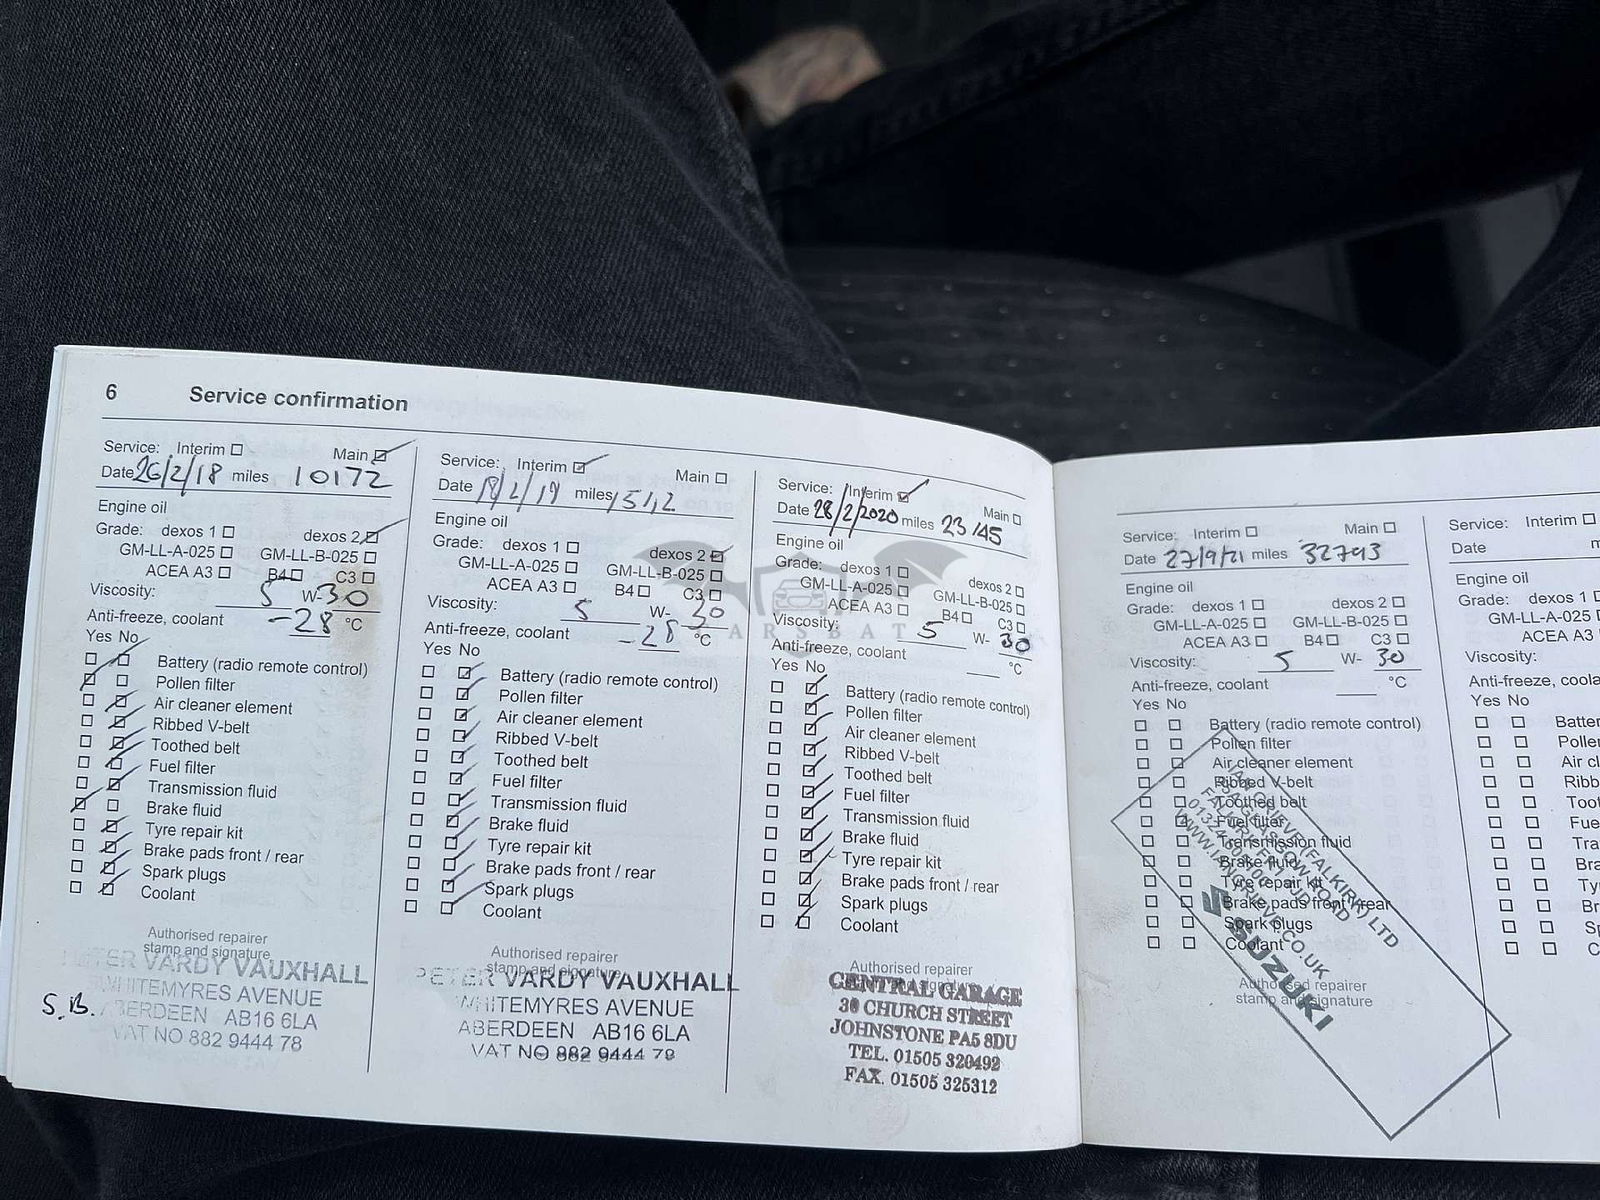 6 Service confirmation
Service: Interim Main
Date 26/2/18 miles 10172
Engine oil
Grade: dexos 1 dexos 2
GM-LL-A-025 GM-LL-B-025
ACEA A3 B4 C3
Viscosity: 5 W-30
Anti-freeze, coolant -28 °C
Yes No
Battery (radio remote control)
Pollen filter
Air cleaner element
Ribbed V-belt
Toothed belt
Fuel filter
Transmission fluid
Brake fluid
Tyre repair kit
Brake pads front / rear
Spark plugs
Coolant
Authorised repairer
stamp and signature
PETER VARDY VAUXHALL
WHITEMYRES AVENUE
S.B. ABERDEEN AB16 6LA
VAT NO 882 9444 78
Service: Interim Main
Date 18/2/19 miles
Engine oil
Grade: dexos 1 dexos 2
GM-LL-A-025 GM-LL-B-025
ACEA A3 B4 C3
Viscosity: 5 W-30
Anti-freeze, coolant -28 °C
Yes No
Battery (radio remote control)
Pollen filter
Air cleaner element
Ribbed V-belt
Toothed belt
Fuel filter
Transmission fluid
Brake fluid
Tyre repair kit
Brake pads front / rear
Spark plugs
Coolant
Authorised repairer
stamp and signature
PETER VARDY VAUXHALL
WHITEMYRES AVENUE
ABERDEEN AB16 6LA
VAT NO 882 9444 78
Service: Interim Main
Date 28/2/2020 miles 23145
Engine oil
Grade: dexos 1 dexos 2
GM-LL-A-025 GM-LL-B-025
ACEA A3 B4 C3
Viscosity: 5 W-30
Anti-freeze, coolant °C
Yes No
Battery (radio remote control)
Pollen filter
Air cleaner element
Ribbed V-belt
Toothed belt
Fuel filter
Transmission fluid
Brake fluid
Tyre repair kit
Brake pads front / rear
Spark plugs
Coolant
Authorised repairer
stamp and signature
CENTRAL GARAGE
30 CHURCH STREET
JOHNSTONE PA5 8DU
TEL. 01505 320492
FAX. 01505 325312
ARSBAT
Service: Interim Main
Date 27/9/21 miles 32793
Engine oil
Grade: dexos 1 dexos 2
GM-LL-A-025 GM-LL-B-025
ACEA A3 B4 C3
Viscosity: 5 W-30
Anti-freeze, coolant °C
Yes No
Battery (radio remote control)
Pollen filter
Air cleaner element
Ribbed V-belt
Toothed belt
Fuel filter
Transmission fluid
Brake fluid
Tyre repair kit
Brake pads front / rear
Spark plugs
Coolant
Authorised repairer
stamp and signature
IAN GRIEVE (FALKIRK) LTD
GLASGOW ROAD
FALKIRK FK1
WWW.IANGRIEVE.CO.UK
SUZUKI
Service: Interim
Date
Engine oil
Grade: dexos 1
GM-LL-A-02
ACEA A3
Viscosity:
Anti-freeze, coola
Yes No
Batter
Pollen
Air cl
Ribb
Too
Fue
Tra
Bra
Ty
Br
Sp
C